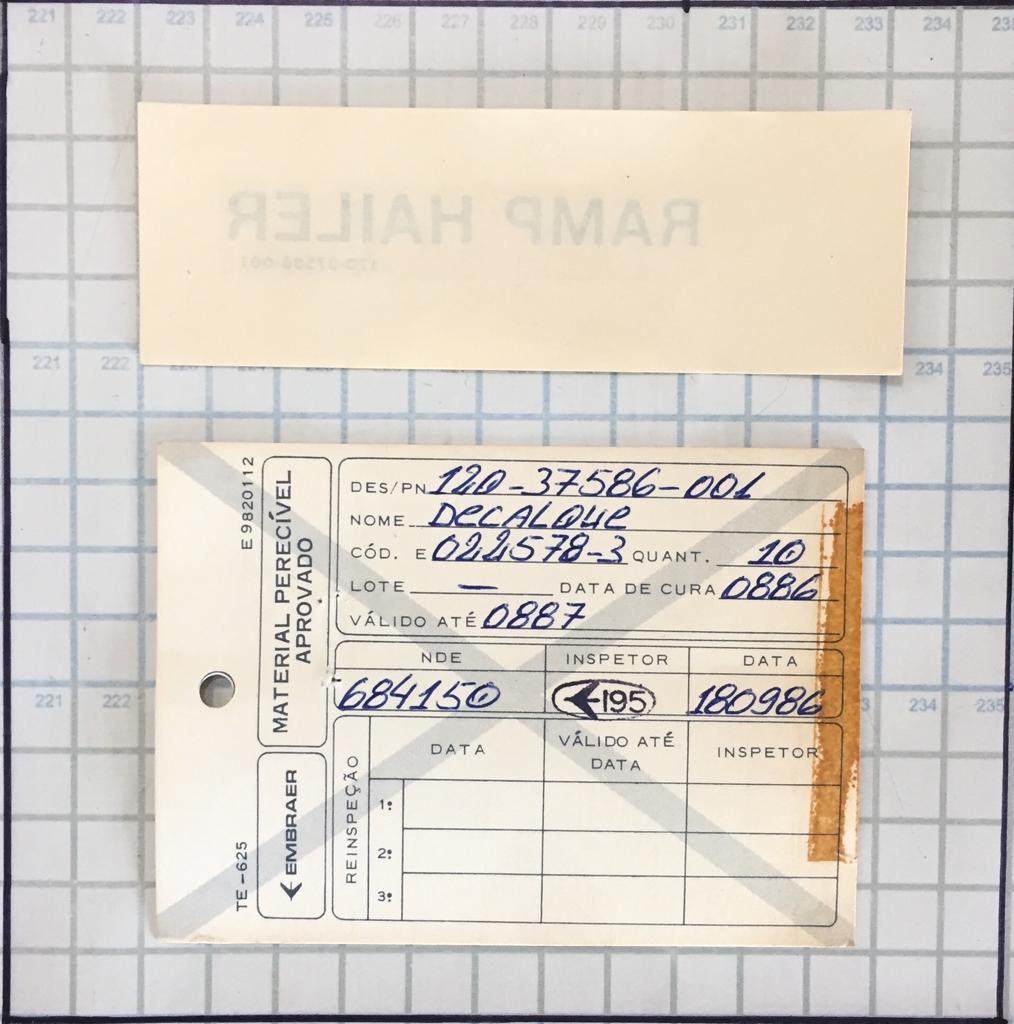 221 222 223 224 225 226 227 228 229 230 231 232 233 234 235
RAMP HAILER
120-37586-001
221 222 223 234 235
E 9820112
MATERIAL PERECÍVEL
APROVADO
DES/PN 120-37586-001
NOME DECALQUE
CÓD. E 022578-3 QUANT. 10
LOTE — DATA DE CURA 0886
VÁLIDO ATÉ 0887
NDE INSPETOR DATA
684150 195 180986
221 222 234 235
TE-625
EMBRAER
REINSPEÇÃO
DATA VÁLIDO ATÉ DATA INSPETOR
1º
2º
3º